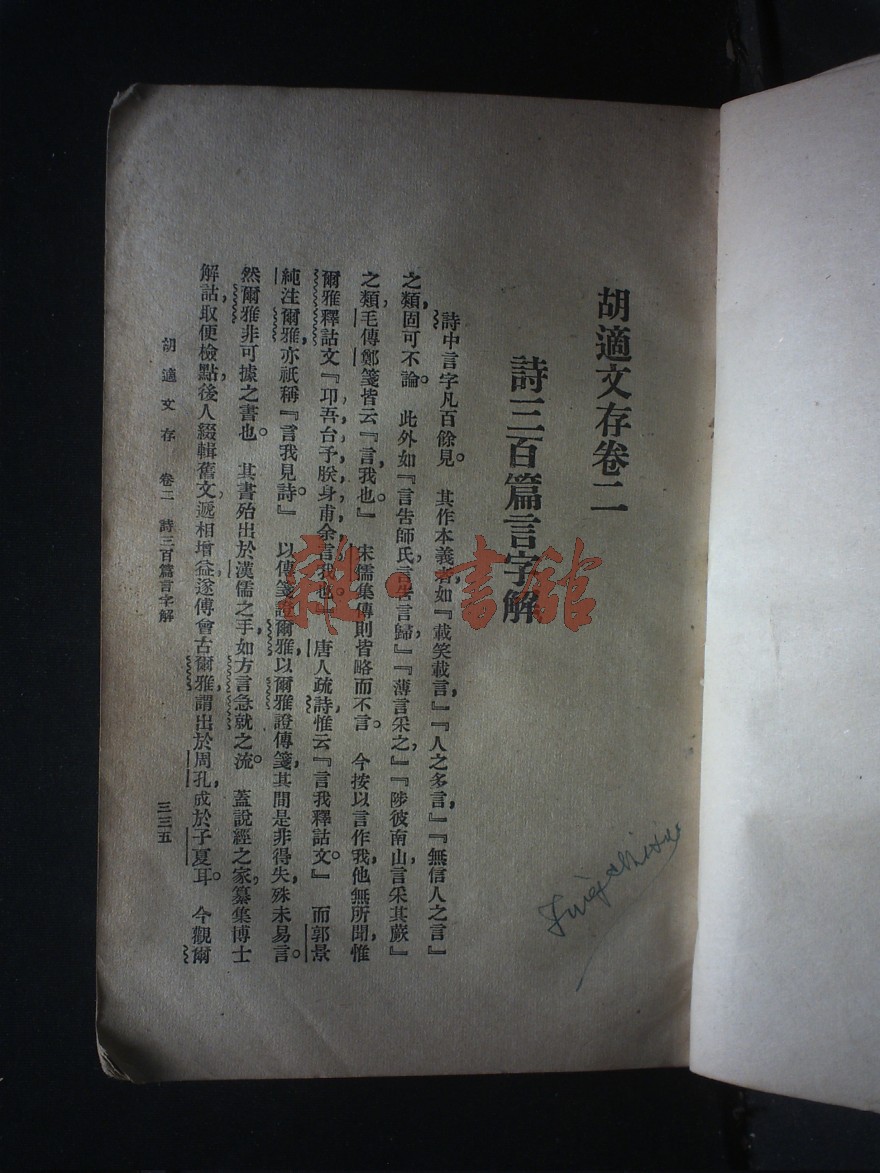 胡適文存卷二
詩三百篇言字解
詩中言字凡百餘見。其作本義者，如『載笑載言，』『人之多言，』『無信人之言』
之類，固可不論。此外如『言告師氏，言告言歸，』『薄言采之，』『陟彼南山，言采其蕨』
之類，毛傳鄭箋皆云『言，我也。』宋儒集傳則皆略而不言。今按以言作我，他無所聞，惟
爾雅釋詁文『卬，吾，台，予，朕，身，甫，余，言，我也。』唐人疏詩，惟云『言我釋詁文。』而郭景
純注爾雅，亦祇稱『言我見詩。』以傳箋證爾雅，以爾雅證傳箋，其間是非得失，殊未易言。
然爾雅非可據之書也。其書殆出於漢儒之手，如方言急就之流。蓋說經之家，纂集博士
解詁，取便檢點，後人綴輯舊文，遞相增益，遂傅會古爾雅，謂出於周孔，成於子夏耳。今觀爾
胡適文存 卷二 詩三百篇言字解
三三五
雜·書館